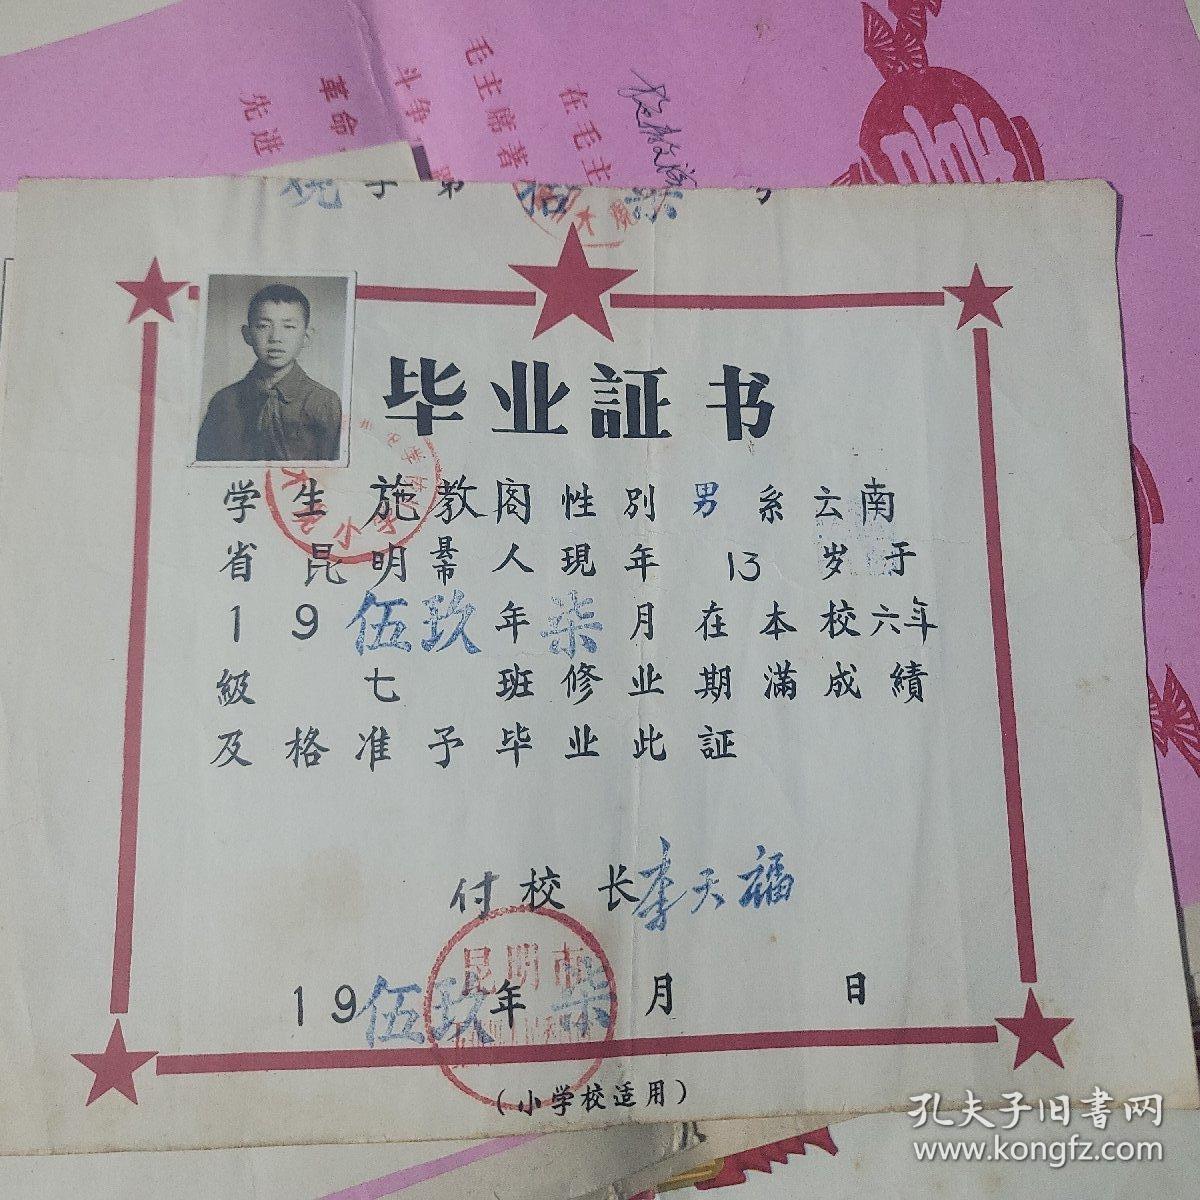 先进
革命
斗争
毛主席著
在毛主
字第拾柒号
毕业証书
学生施教阁性别男系云南
省昆明县市人現年13岁于
19伍玖年柒月在本校六年
級七班修业期滿成績
及格准予毕业此証
付校长李天福
昆明市
19伍玖年柒月日
(小学校适用)
孔夫子旧書网
www.kongfz.com